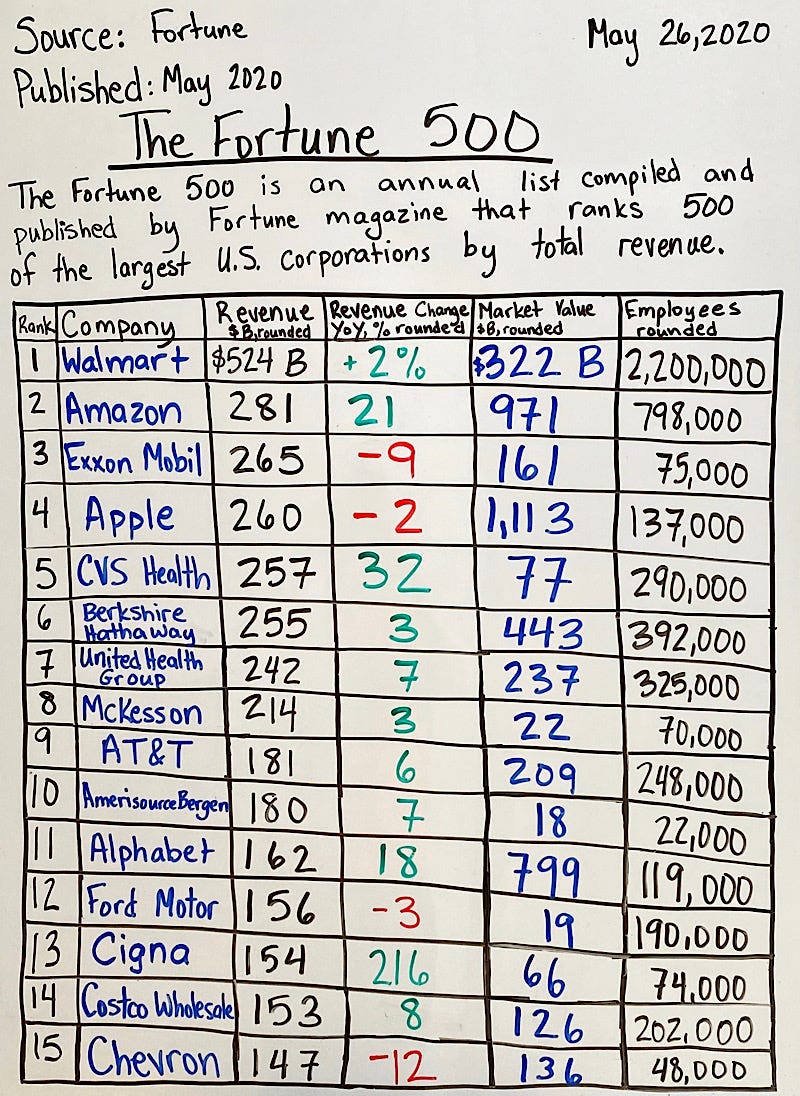 Source: Fortune May 26,2020
Published: May 2020
The Fortune 500
The Fortune 500 is an annual list compiled and
published by Fortune magazine that ranks 500
of the largest U.S. corporations by total revenue.
Rank Company Revenue $B,rounded Revenue Change YoY, % rounded Market Value $B, rounded Employees rounded
1 Walmart $524 B +2% $322 B 2,200,000
2 Amazon 281 21 971 798,000
3 Exxon Mobil 265 -9 161 75,000
4 Apple 260 -2 1,113 137,000
5 CVS Health 257 32 77 290,000
6 Berkshire Hathaway 255 3 443 392,000
7 United Health Group 242 7 237 325,000
8 McKesson 214 3 22 70,000
9 AT&T 181 6 209 248,000
10 AmerisourceBergen 180 7 18 22,000
11 Alphabet 162 18 799 119,000
12 Ford Motor 156 -3 19 190,000
13 Cigna 154 216 66 74,000
14 Costco Wholesale 153 8 126 202,000
15 Chevron 147 -12 136 48,000